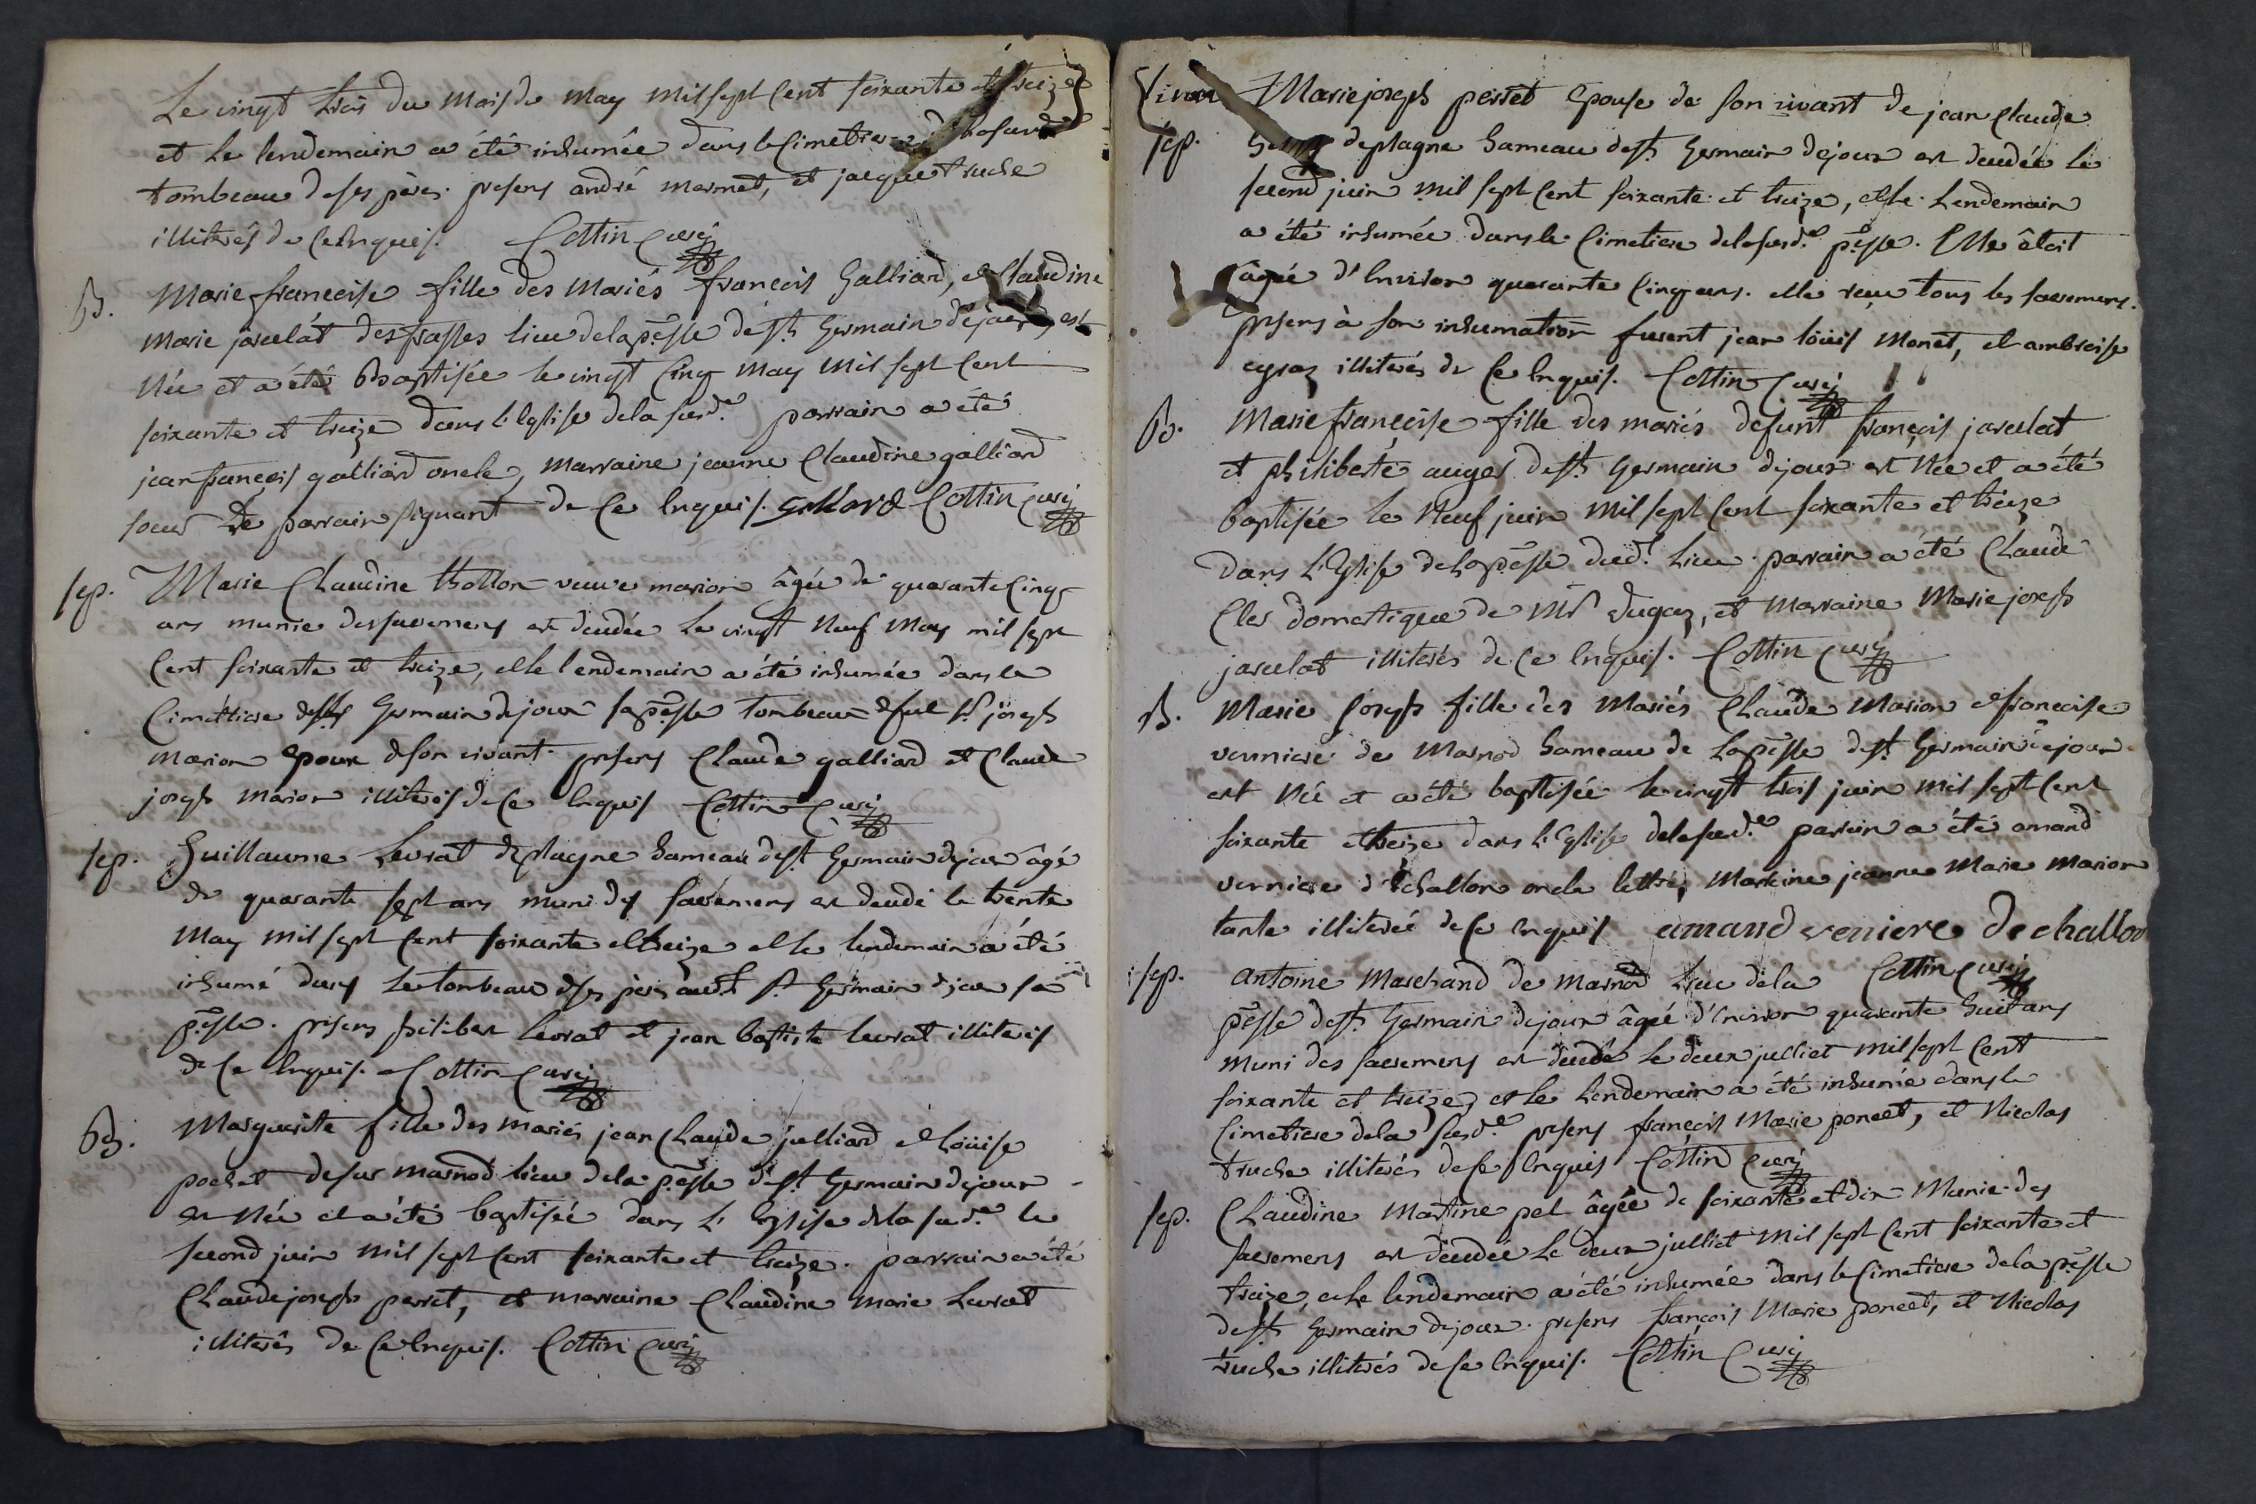 Le vingt trois du mois de may mil sept cent soixante et treize
et le lendemain a été inhumée dans le cimetiere de la susd.e
tombeau de ses pères. presens andré mermet, et jacque truche
illiterés de ce enquis. Cottin curé
B. Marie françoise fille des mariés françois Galliard, et Claudine
marie javelát des frasses lieu de la p.esse de st germain de joux, est
née et a été Baptisée le vingt cinq may mil sept cent
soixante et treize dans l'eglise de la susd.e parrain a été
jean françois galliard oncle, marraine jeanne Claudine galliard
soeur le parrain signant de ce enquis. Galliard Cottin curé
sep. Marie Claudine thollon veuve marion âgée de quarante cinq
ans munie des sacremens est decedée le vingt neuf may mil sept
cent soixante et treize, et le lendemain a été inhumée dans le
cimettiere de st Germain de joux sa p.esse tombeau de feu st joseph
marion epoux de son vivant. presens Claude galliard et Claude
joseph marion illiterés de ce enquis Cottin curé
sep. Guillaume Levrat de plagne hameau de st Germain de joux âgé
de quarante sept ans muni des sacremens est decedé le trente
may mil sept cent soixante et treize et le lendemain a été
inhumé dans le tombeau de ses peres aud.t st Germain de joux sa
p.esse. presens philiber levrat et jean baptiste levrat illiterés
de ce enquis. Cottin curé
B. Marguerite fille des mariés jean Claude julliard et Loüise
pochet de sur marnod lieu de la p.esse de st Germain de joux
est née et a été baptisée dans l'Eglise de la susd.e le
second juin mil sept cent soixante et treize. parrain a été
Claude joseph perret, et marraine Claudine marie Levrat
illiterés de ce enquis. Cottin curé
Marie joseph perret epouse de son vivant de jean Claude
sep. de plagne hameau de st Germain de joux est decedée le
second juin mil sept cent soixante et treize, et le lendemain
a été inhumée dans le cimetiere de la susd.e p.esse. Elle êtoit
âgée d'environ quarante cinq ans. elle reçu tous les sacremens.
presens à son inhumation furent jean loüis monet, et ambroise
illiterés de ce enquis. Cottin curé
B. Marie françoise fille des mariés defunt françois javelat
et philiberte auger de st Germain de joux est née et a été
baptisée le neuf juin mil sept cent soixante et treize
dans l'Eglise de la p.esse dud.t lieu. parrain a été Claude
Cler domestique de Mr Dugaz, et marraine Marie joseph
javelat illiterés de ce enquis. Cottin curé
B. Marie Joseph fille des mariés Claude Marion et françoise
verniere de marnod hameau de la p.esse de st Germain de joux
est née et a été baptisée le vingt trois juin mil sept cent
soixante et treize dans l'Eglise de la susd.e parrain a été amand
verniere d'échallon oncle lettré, marraine jeanne Marie marion
tante illiterée de ce enquis amand veniere de challon
sep. antoine Marchand de marnod lieu de la Cottin curé
p.esse de st Germain de joux âgé d'environ quarante huit ans
muni des sacremens est decedé le deux julliet mil sept cent
soixante et treize, et le lendemain a été inhumé dans le
cimetiere de la susd.e presens françois Marie poncet, et Nicolas
truche illiterés de ce enquis Cottin curé
sep. Claudine Martine pel âgée de soixante et dix munie des
sacremens est decedée le deux julliet mil sept cent soixante et
treize, et le lendemain a été inhumée dans le cimetiere de la p.esse
de st Germain de joux. presens françois Marie poncet, et Nicolas
truche illiterés de ce enquis. Cottin curé